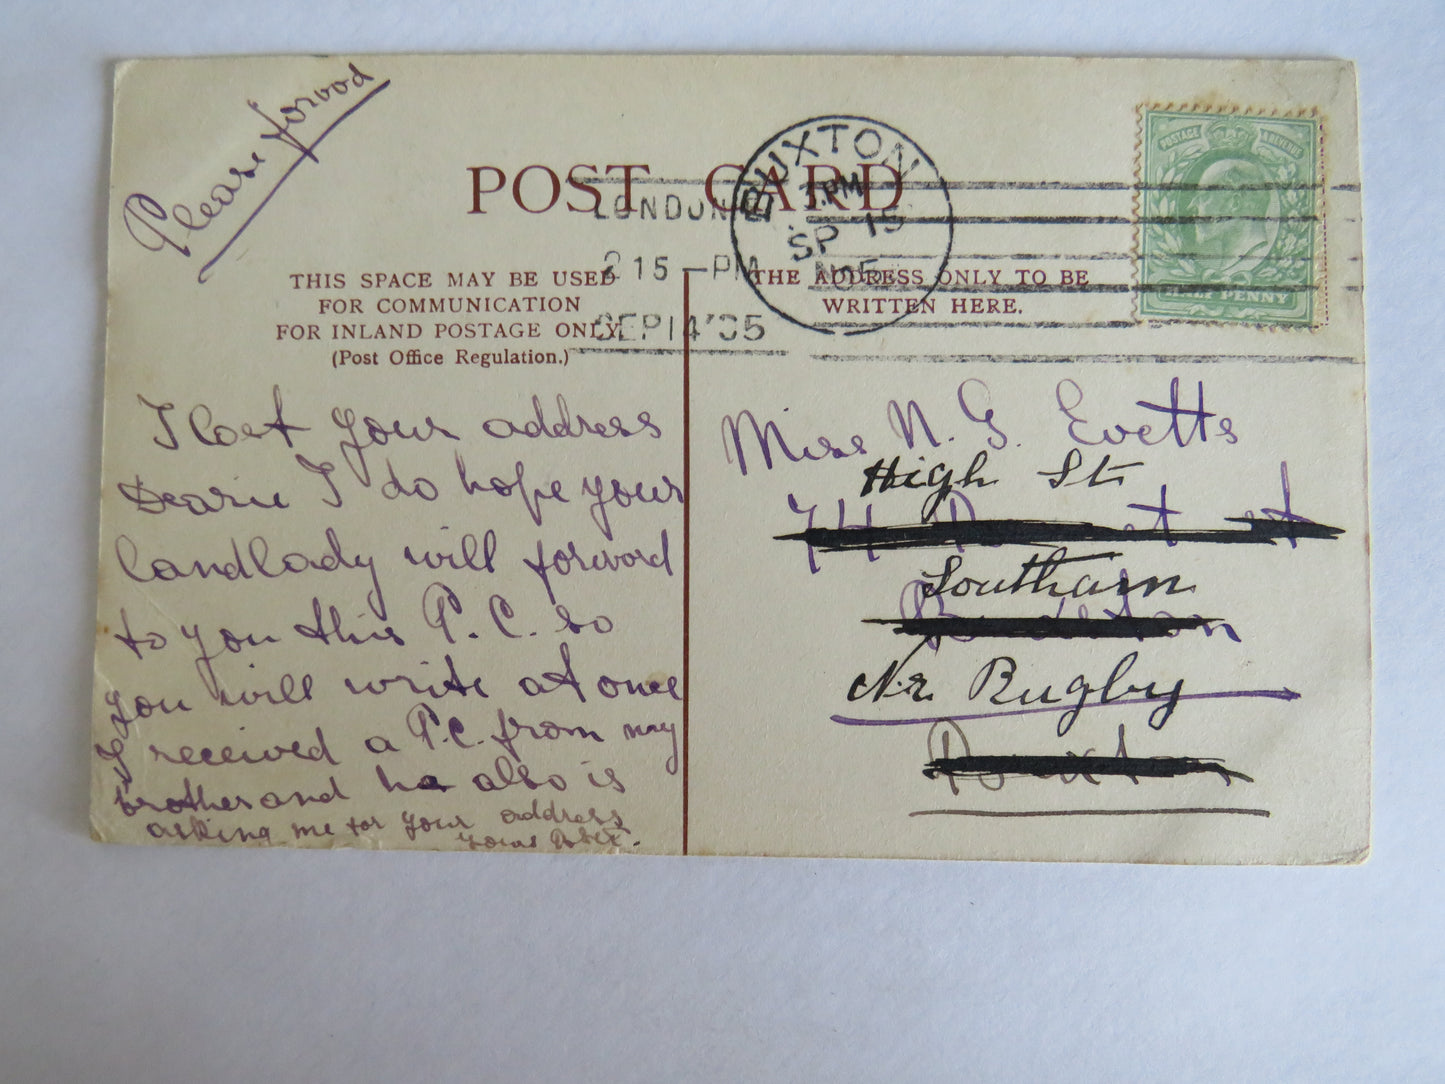 Please forwod
POST CARD
LONDON
2 15 - PM
SEP 14 '05
BUXTON
PM
SP 15
POSTAGE & REVENUE
HALF PENNY
THIS SPACE MAY BE USED
FOR COMMUNICATION
FOR INLAND POSTAGE ONLY.
(Post Office Regulation.)
THE ADDRESS ONLY TO BE
WRITTEN HERE.
I lost your address
Dearie I do hope your
landlady will forword
to you this P.C. so
you will write at once
I received a P.C. from my
brother and he also is
asking me for your address
yours
Miss N. G. Evetts
High St
Southam
Nr. Rugby